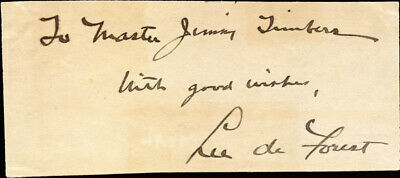 To Master Jimmy Timbers
With good wishes,
Lee de Forest